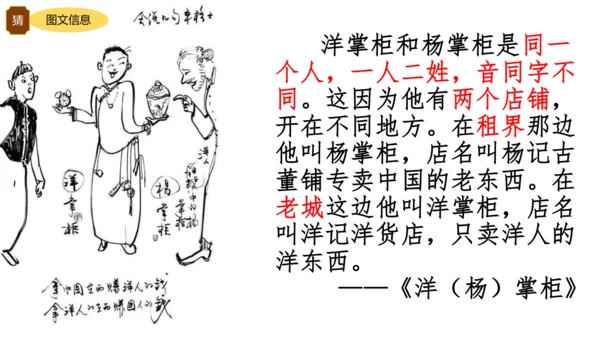 猜
图文信息
会说几句辛格士
洋掌柜
杨掌柜
洋
拿中国东西赚洋人的钱
拿洋人东西赚国人的钱
洋掌柜和杨掌柜是同一
个人，一人二姓，音同字不
同。这因为他有两个店铺，
开在不同地方。在租界那边
他叫杨掌柜，店名叫杨记古
董铺专卖中国的老东西。在
老城这边他叫洋掌柜，店名
叫洋记洋货店，只卖洋人的
洋东西。
——《洋（杨）掌柜》